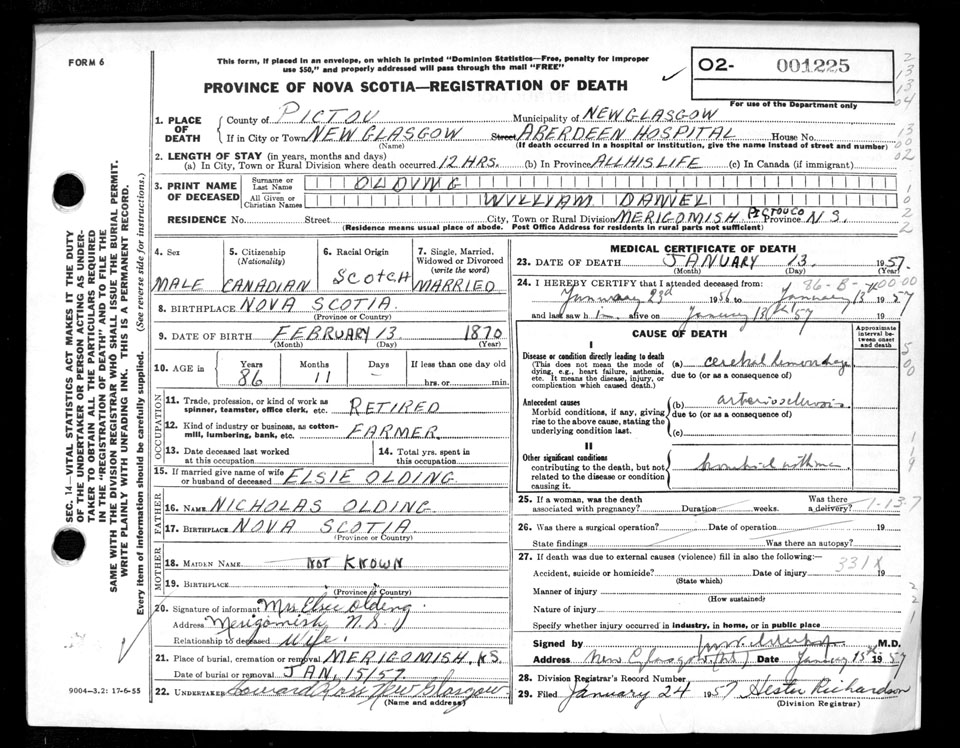 FORM 6
This form, if placed in an envelope, on which is printed "Dominion Statistics—Free, penalty for improper
use $50," and properly addressed will pass through the mail "FREE"
PROVINCE OF NOVA SCOTIA—REGISTRATION OF DEATH
O2- 001225
For use of the Department only
1. PLACE OF DEATH
County of PICTOU Municipality of NEW GLASGOW
If in City or Town NEW GLASGOW Street ABERDEEN HOSPITAL House No.
(Name) (If death occurred in a hospital or institution, give the name instead of street and number)
2. LENGTH OF STAY (in years, months and days)
(a) In City, Town or Rural Division where death occurred 12 HRS. (b) In Province ALL HIS LIFE (c) In Canada (if immigrant)
3. PRINT NAME OF DECEASED
Surname or Last Name OLDING
All Given or Christian Names WILLIAM DANIEL
RESIDENCE No. Street City, Town or Rural Division MERIGOMISH PICTOU CO Province N S.
(Residence means usual place of abode. Post Office Address for residents in rural parts not sufficient)
4. Sex MALE
5. Citizenship (Nationality) CANADIAN
6. Racial Origin SCOTCH
7. Single, Married, Widowed or Divorced (write the word) MARRIED
8. BIRTHPLACE NOVA SCOTIA
(Province or Country)
9. DATE OF BIRTH FEBRUARY 13 1870
(Month) (Day) (Year)
10. AGE in Years 86 Months 11 Days If less than one day old
hrs. or min.
OCCUPATION
11. Trade, profession, or kind of work as
spinner, teamster, office clerk, etc. RETIRED
12. Kind of industry or business, as cotton-
mill, lumbering, bank, etc. FARMER.
13. Date deceased last worked
at this occupation
14. Total yrs. spent in
this occupation
15. If married give name of wife
or husband of deceased ELSIE OLDING
FATHER
16. NAME NICHOLAS OLDING
17. BIRTHPLACE NOVA SCOTIA
(Province or Country)
MOTHER
18. MAIDEN NAME NOT KNOWN
19. BIRTHPLACE
(Province or Country)
20. Signature of informant Mrs Elsie Olding
Address Merigomish N.S.
Relationship to deceased Wife.
21. Place of burial, cremation or removal MERIGOMISH, N.S.
Date of burial or removal JAN, 15/57.
22. UNDERTAKER New Glasgow
(Name and address)
MEDICAL CERTIFICATE OF DEATH
23. DATE OF DEATH JANUARY 13. 1957.
(Month) (Day) (Year)
86-B-
24. I HEREBY CERTIFY that I attended deceased from:
January 23rd 1956 to January 13 1957
and last saw h im alive on January 13 57
CAUSE OF DEATH
Approximate interval between onset and death
I
Disease or condition directly leading to death
(This does not mean the mode of
dying, e.g., heart failure, asthenia,
etc. It means the disease, injury, or
complication which caused death.)
(a) cerebral hemorrhage
due to (or as a consequence of)
Antecedent causes
Morbid conditions, if any, giving
rise to the above cause, stating the
underlying condition last.
(b) arteriosclerosis
due to (or as a consequence of)
(c)
II
Other significant conditions
contributing to the death, but not
related to the disease or condition
causing it.
bronchial asthma
25. If a woman, was the death
associated with pregnancy? Duration weeks. Was there
a delivery?
1-13-7
26. Was there a surgical operation? Date of operation 19
State findings Was there an autopsy?
27. If death was due to external causes (violence) fill in also the following:
331X
Accident, suicide or homicide? Date of injury 19
(State which)
Manner of injury
(How sustained)
Nature of injury
Specify whether injury occurred in industry, in home, or in public place
Signed by M.D.
Address New Glasgow (NS) Date January 15th 1957
28. Division Registrar's Record Number
29. Filed January 24 1957 Hester Richardson
(Division Registrar)
SEC. 14—VITAL STATISTICS ACT MAKES IT THE DUTY
OF THE UNDERTAKER OR PERSON ACTING AS UNDER-
TAKER TO OBTAIN ALL THE PARTICULARS REQUIRED
IN THE "REGISTRATION OF DEATH" AND TO FILE THE
SAME WITH THE DIVISION REGISTRAR WHO SHALL ISSUE THE BURIAL PERMIT.
WRITE PLAINLY WITH UNFADING INK. THIS IS A PERMANENT RECORD.
Every item of information should be carefully supplied. (See reverse side for instructions.)
9004-3,2: 17-6-55